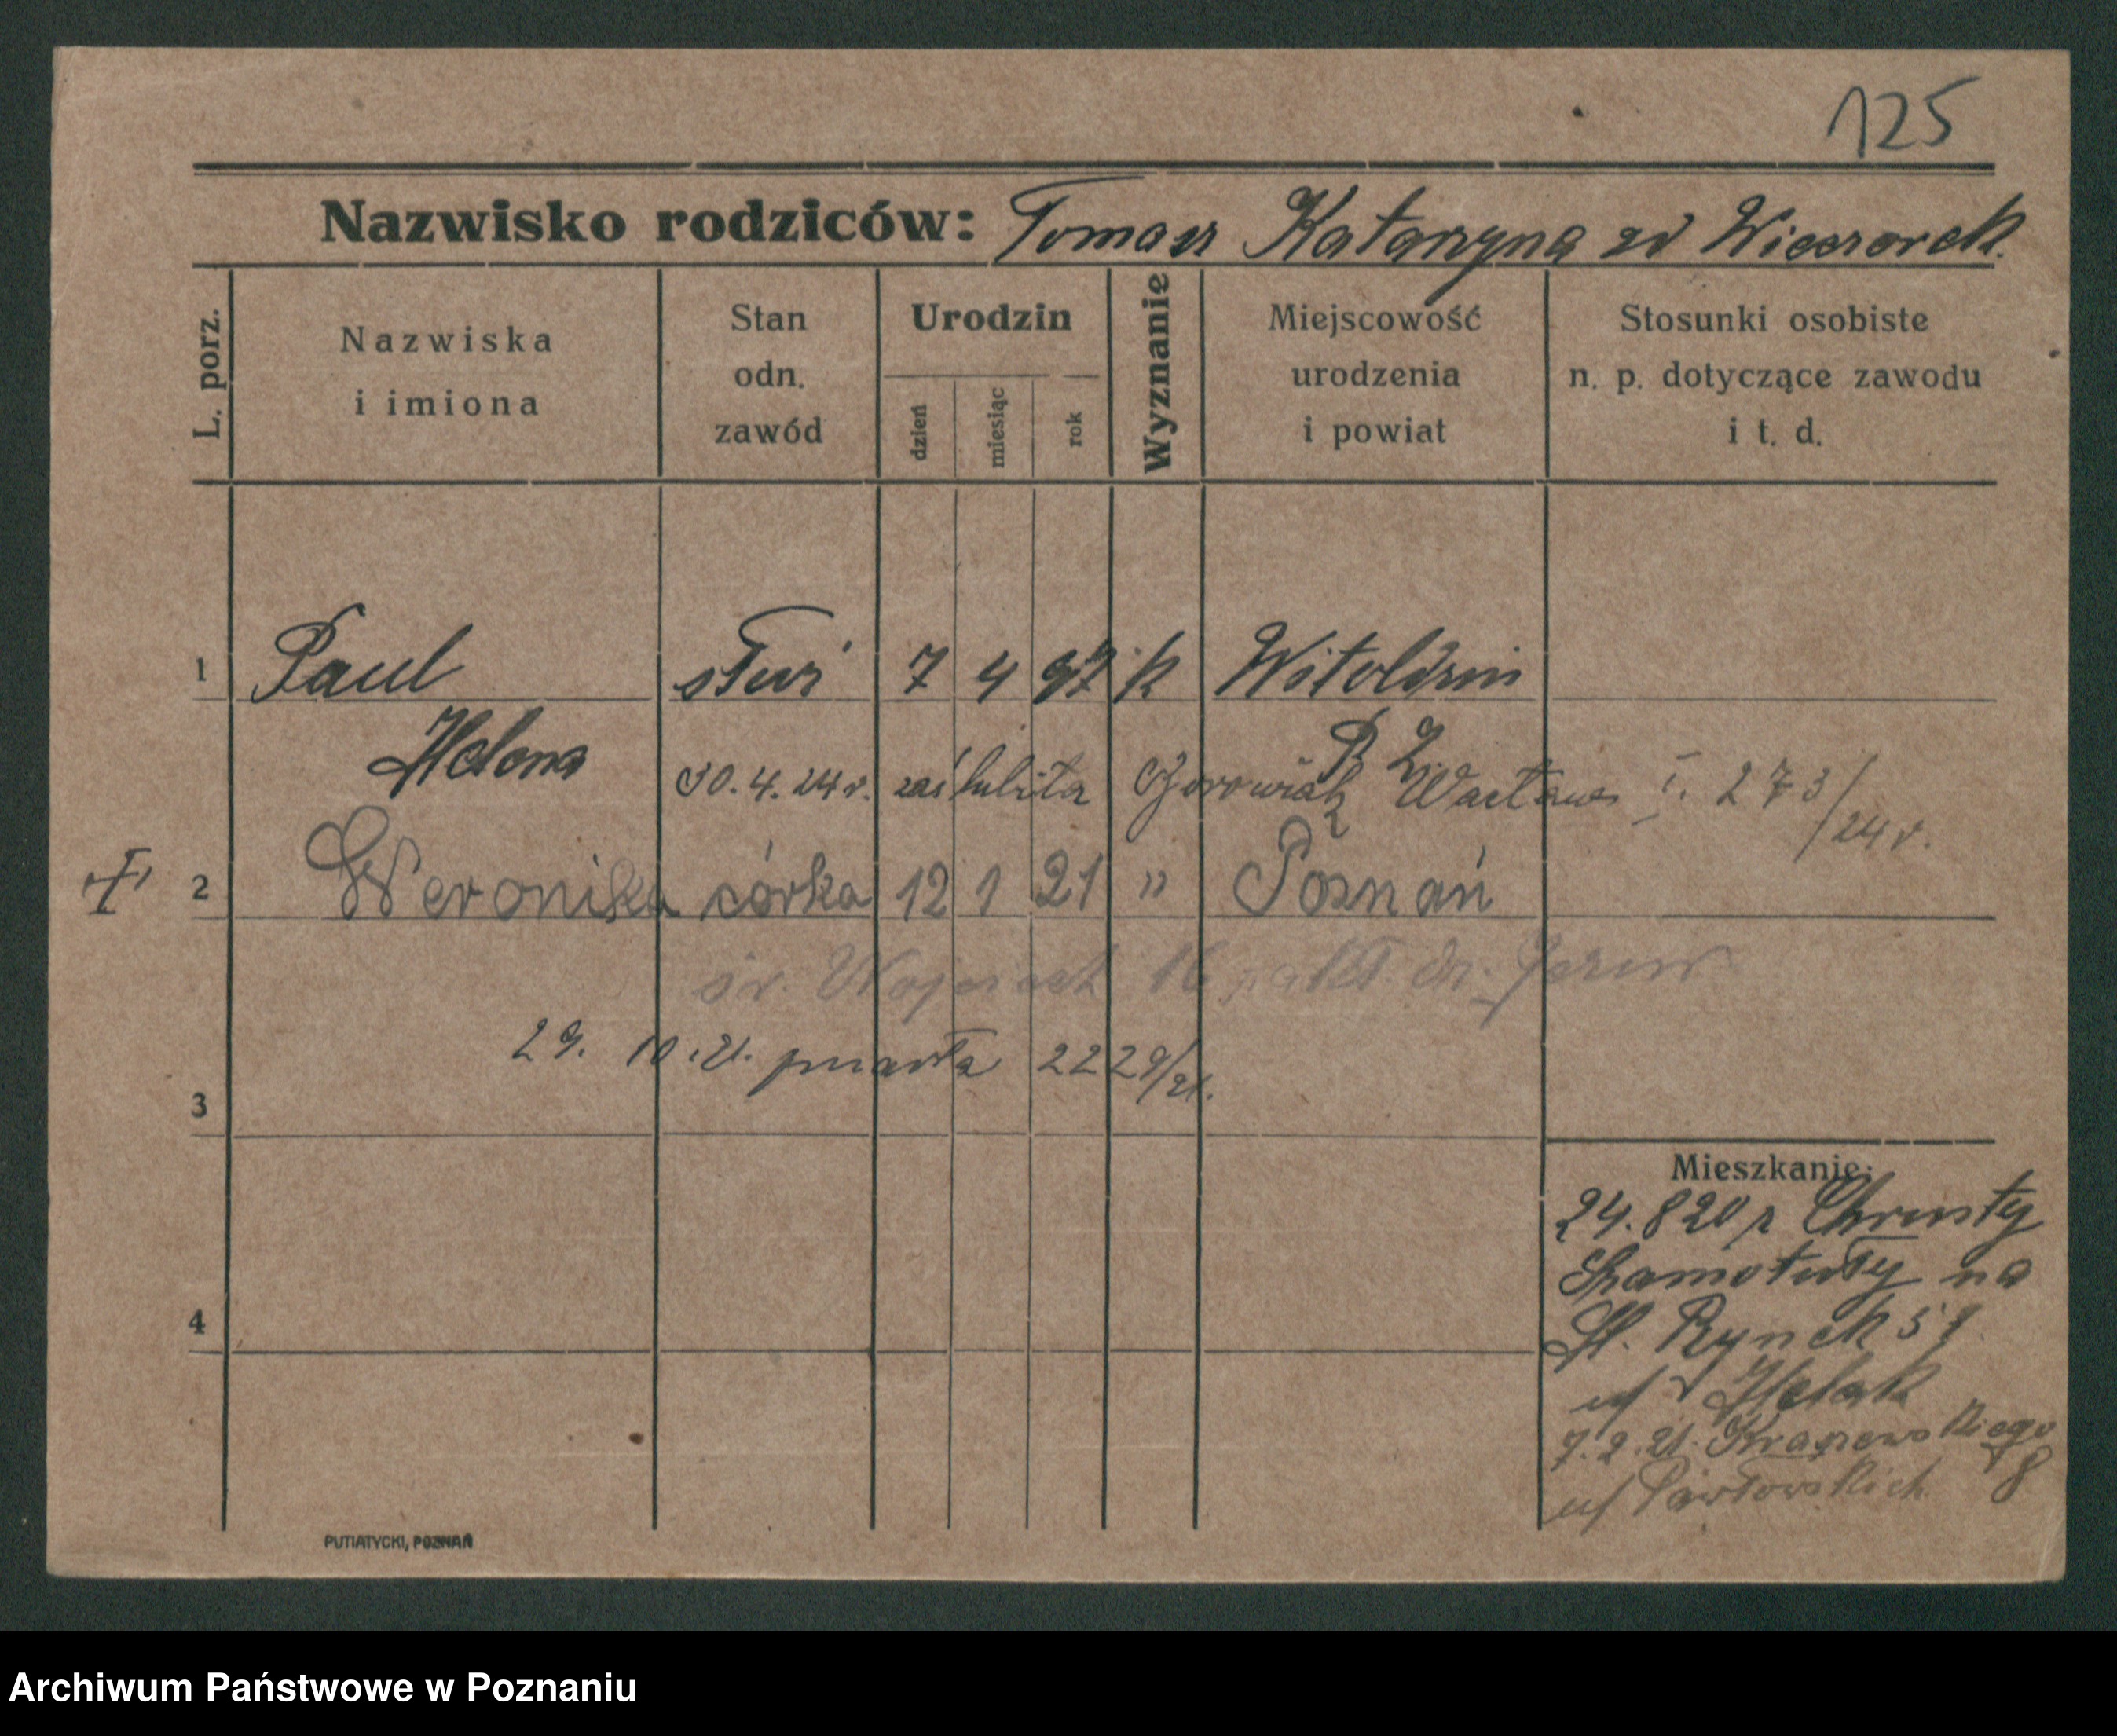 125
Nazwisko rodziców: Tomasz Katarzyna zd Wieczorek.
L. porz.
Nazwiska
i imiona
Stan
odn.
zawód
Urodzin
dzień
miesiąc
rok
Wyznanie
Miejscowość
urodzenia
i powiat
Stosunki osobiste
n. p. dotyczące zawodu
i t. d.
1 Paul służ 7 4 97 k
Helena
30.4.24 r. zaślubiła Wacława I. 273/24 r.
2 Weronika córka 12 1 21 " Poznań
św. Wojciech 16
29. 10. 21. zmarła 2229/21.
3
Mieszkanie:
24.8 20 z Chrusty
Szamotuły na
St. Rynek 51
4
7.2.21. Kraszewskiego 8
u/ Pawłowskich
PUTIATYCKI, POZNAŃ
Archiwum Państwowe w Poznaniu